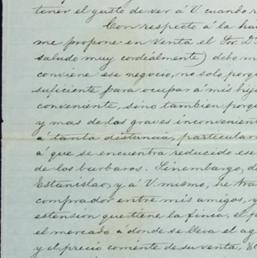 tener el gusto de ver á V cuando r
Con respecto á la ha
me propone en venta el Sor. D
saludo muy cordialmente) debo m
conviene ese negocio, no solo porq
suficiente para ocupar á mis hij
conveniente, sino tambien porqu
y mas de las graves inconvenient
á tanta distancia, particularm
á que se encuentra reducido es
de los barbaros. Sinembargo, d
Estanislao, y á V mismo, he tra
comprador entre mis amigos, y
estension que tiene la finca, el p
el mercado a donde se lleva el ag
y el precio corriente de su venta. E